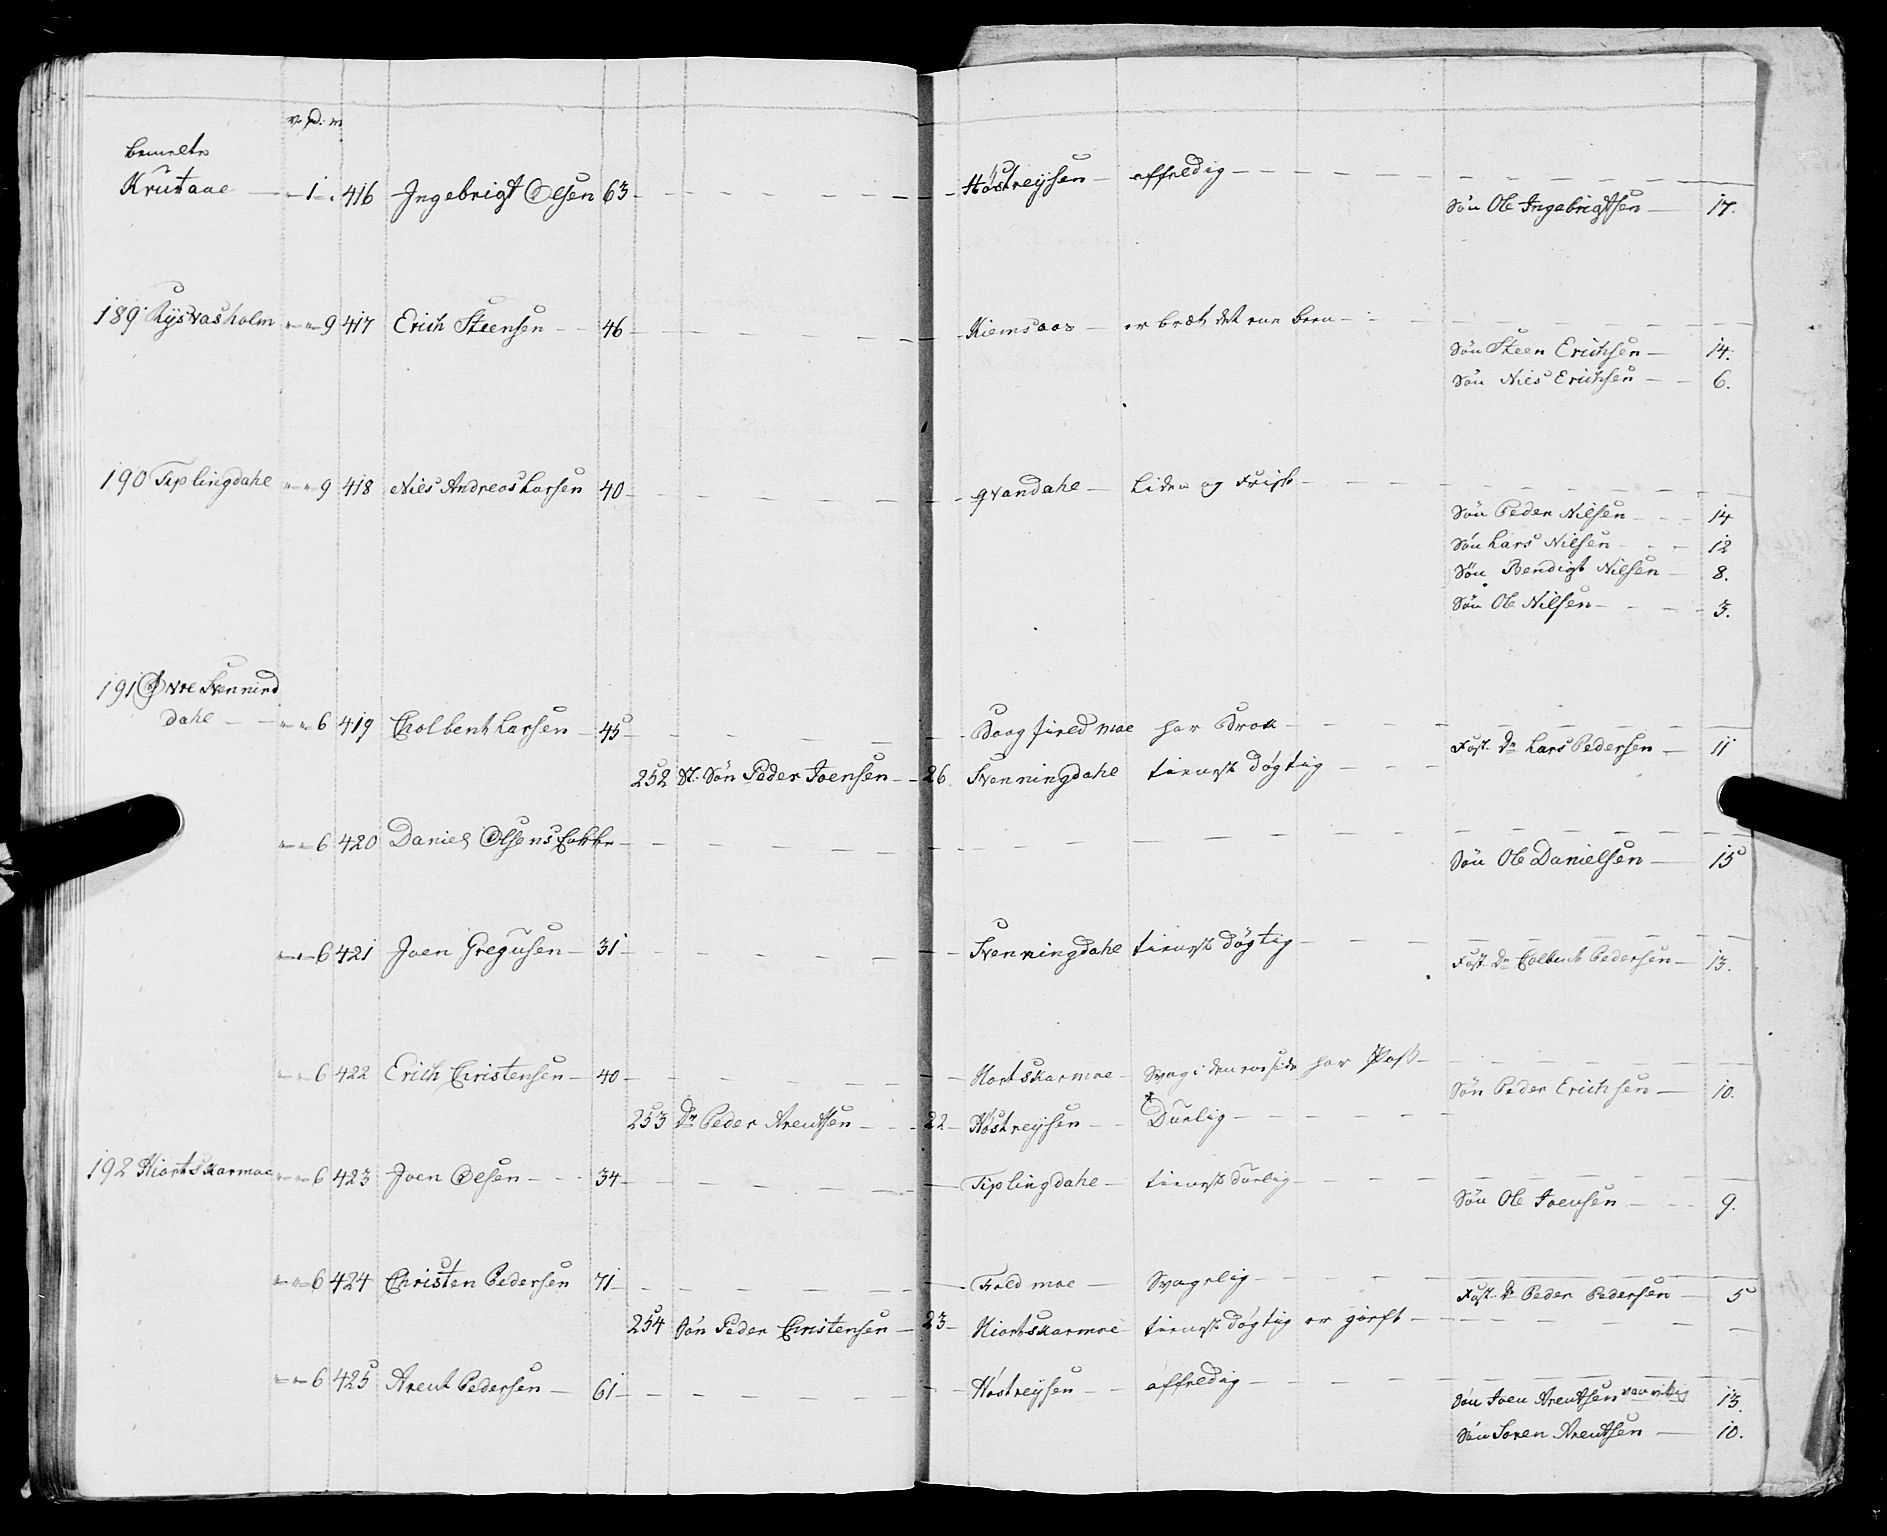 v. p. m
bemelte
Krutaae — 1 416 Jngebrigt Olsen 63 Høstreysen affeldig
Søn Ole Ingebrigtsen 17.
189 Rysvasholm 9 417 Erich Steensen 46 Kiemsaas er bræk det ene been
Søn Steen Erichsen 14.
Søn Niels Erichsen 6.
190 Tiplingdahl 9 418 Niels Andreas Larsen 40 qvandahl Liden og Frisk
Søn Peder Nilsen 14
Søn Lars Nilsen 12
Søn Bendigt Nilsen 8.
Søn Ole Nilsen 3.
191 Øvre Svennind
dahl 6 419 Colbent Larsen 45 har Brok
Fost. Dr Lars Pedersen 11
252 St. Søn Peder Joensen 26 Svenningdahl tienst døgtig
6 420 Daniel Olsens Enke
Søn Ole Danielsen 15
6 421 Joen Gregusen 31 Svenningdahl tienst døgtig
Fost. Dr Colbent Pedersen 13.
6 422 Erich Christensen 40 Hortskarmoe Svag i den ene side har Pass
Søn Peder Erichsen 10.
253 Dr Peder Arentsen 22 Høstreysen Durlig
192 Hiortskarmoe 6 423 Joen Olsen 34 Tiplingdahl tienst durlig
Søn Ole Joensen 9.
6 424 Christen Pedersen 71 Fieldmoe Svagelig
Fost. Dr Peder Pedersen 5
254 Søn Peder Christensen 23 Hiortskarmoe tienst døgtig er gift
6 425 Arent Pedersen 61 Høstreysen affeldig
Søn Joen Arentsen vanvittig 13.
Søn Soren Arentsen 10.